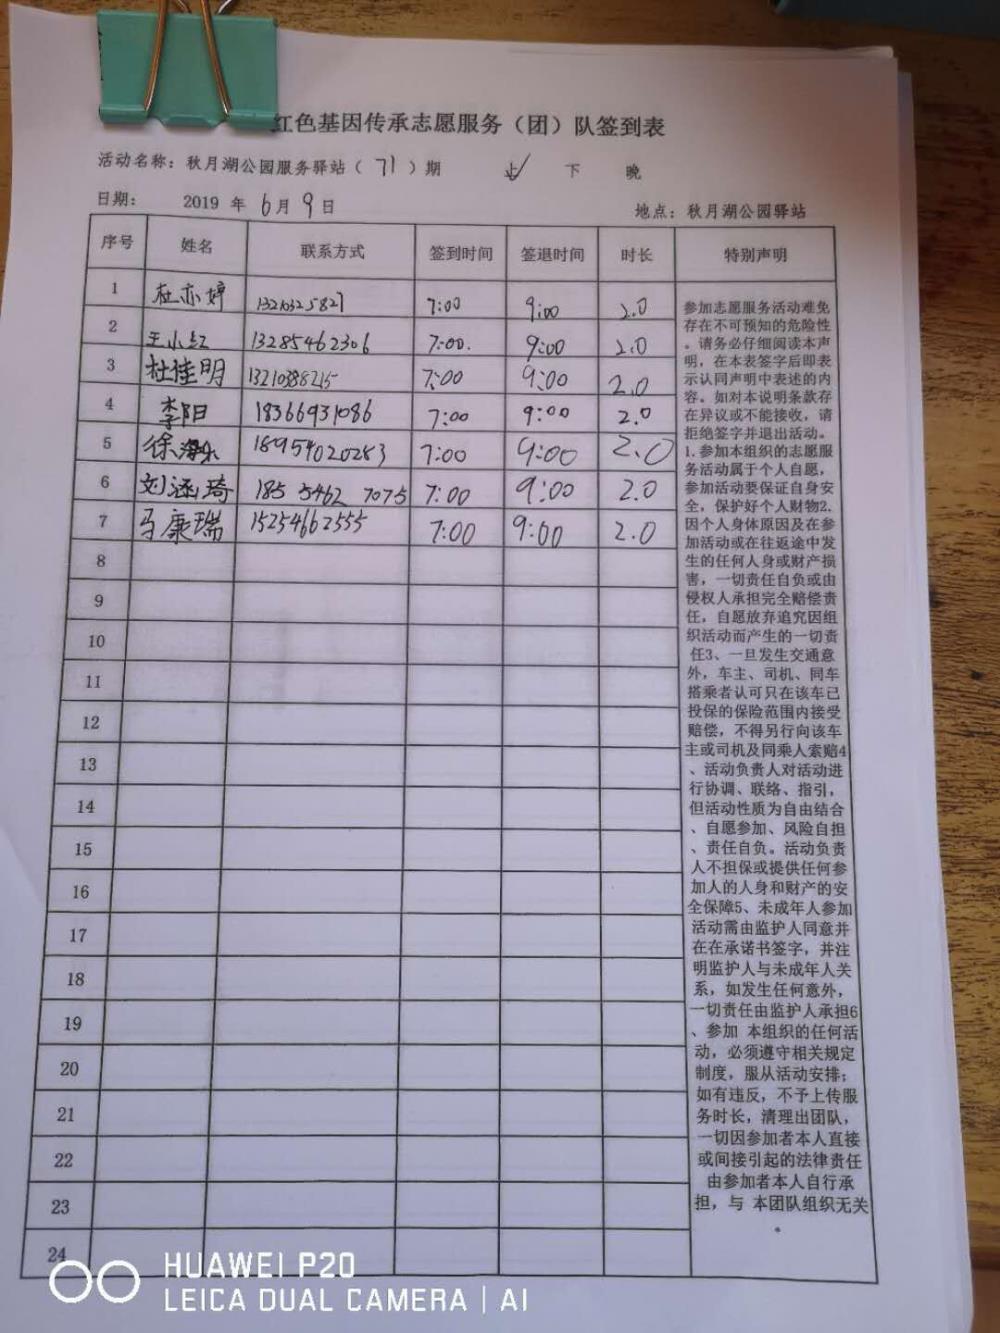 红色基因传承志愿服务（团）队签到表
活动名称：秋月湖公园服务驿站（71）期 上√ 下 晚
日期： 2019 年 6月 9日 地点：秋月湖公园驿站
序号 姓名 联系方式 签到时间 签退时间 时长 特别声明
1 杜亦婷 7:00 9:00 2.0
2 王小红 13285462306 7:00. 9:00 2.0
3 杜佳明 13210388215 7:00 9:00 2.0
4 李阳 18366931086 7:00 9:00 2.0
5 徐 18954020253 7:00 9:00 2.0
6 刘涵琦 185 5462 7075 7:00 9:00 2.0
7 马康瑞 15254662555 7:00 9:00 2.0
8
9
10
11
12
13
14
15
16
17
18
19
20
21
22
23
24
参加志愿服务活动难免
存在不可预知的危险性
。请务必仔细阅读本声
明，在本表签字后即表
示认同声明中表述的内
容。如对本说明条款存
在异议或不能接收，请
拒绝签字并退出活动。
1.参加本组织的志愿服
务活动属于个人自愿，
参加活动要保证自身安
全，保护好个人财物2.
因个人身体原因及在参
加活动或在往返途中发
生的任何人身或财产损
害，一切责任自负或由
侵权人承担完全赔偿责
任，自愿放弃追究因组
织活动而产生的一切责
任3、一旦发生交通意
外，车主、司机、同车
搭乘者认可只在该车已
投保的保险范围内接受
赔偿，不得另行向该车
主或司机及同乘人索赔4
、活动负责人对活动进
行协调、联络、指引，
但活动性质为自由结合
、自愿参加、风险自担
、责任自负。活动负责
人不担保或提供任何参
加人的人身和财产的安
全保障5、未成年人参加
活动需由监护人同意并
在在承诺书签字，并注
明监护人与未成年人关
系，如发生任何意外，
一切责任由监护人承担6
、参加 本组织的任何活
动，必须遵守相关规定
制度，服从活动安排；
如有违反，不予上传服
务时长，清理出团队，
一切因参加者本人直接
或间接引起的法律责任
由参加者本人自行承
担，与 本团队组织无关
。
HUAWEI P20
LEICA DUAL CAMERA | AI